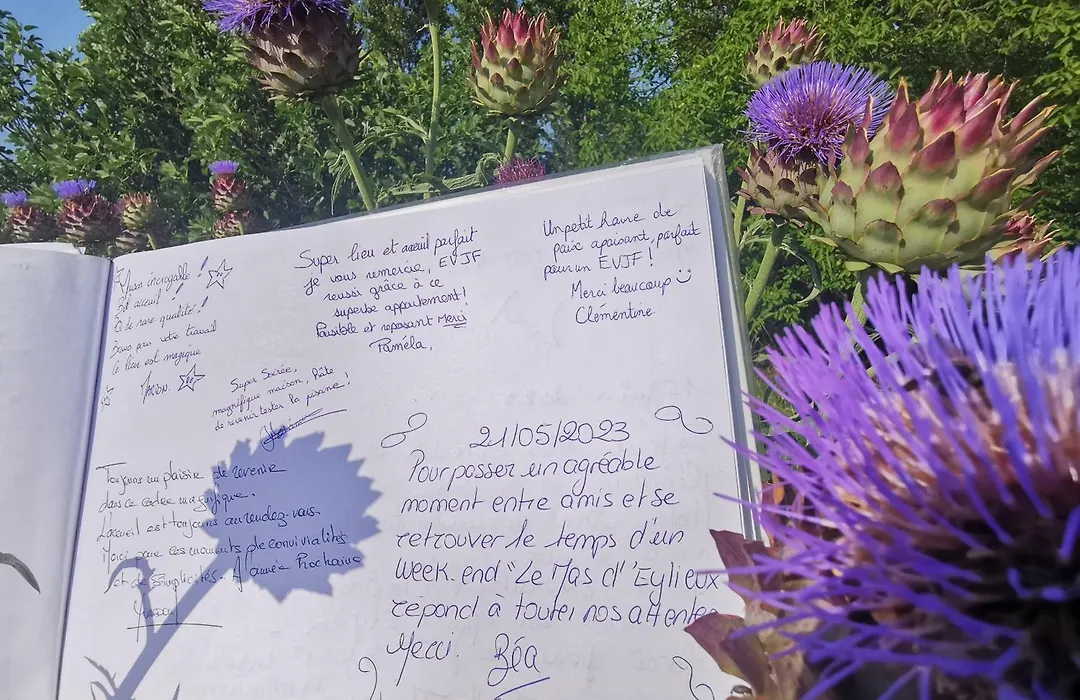 incroyable !
Bel accueil !
de rare qualité !
Bravo pour votre travail
Le lieu est magique
MARION.
Super lieu et acueil parfait
je vous remercie, EVJF
reussi grâce à ce
superbe appartement!
Paisible et reposant Merci
Paméla,
Un petit havre de
paix apaisant, parfait
pour un EVJF !
Merci beaucoup
Clémentine.
Super Soirée,
magnifique maison, hâte
de revenir tester la piscine !
Toujours un plaisir de revenir
dans ce cadre magnifique.
L'accueil est toujours au rendez-vous.
Merci pour ces moments de convivialités
et de Simplicités. A l'année Prochaine
21/05/2023
Pour passer un agréable
moment entre amis et se
retrouver le temps d'un
week.end "Le Mas d'Eylieux
répond à toutes nos attentes
Merci. Béa